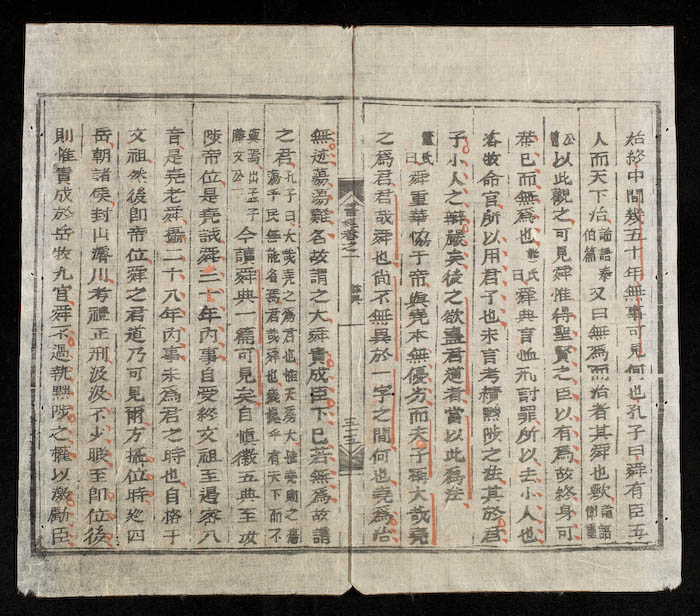 始終中間幾五十年無事可見何也孔子曰舜有臣五
人而天下治論語泰伯篇又曰無為而治者其舜也歟論語衛靈
公篇以此觀之可見舜惟得聖賢之臣以有為故終身可
恭已而無為也氏曰舜典言恤刑討罪所以去小人也
咨牧命官所以用君子也末言考績黜陟之法其於君
子小人之辨嚴矣後之欲盡君道者當以此為法
董氏曰舜重華協于帝與堯本無優劣而夫子稱大哉堯
之為君君哉舜也尚不無異於一字之間何也堯為治
書經卷之一
舜典
無迹蕩蕩難名故謂之大舜責成臣下已若無為故謂
之君孔子曰大哉堯之為君也惟天為大惟堯則之蕩蕩乎民無能名焉君哉舜也巍巍乎有天下而不
與焉出孟子滕文公今讀舜典一篇可見矣自慎徽五典至汝
陟帝位是堯試舜三十年內事自受終文祖至遏密八
音是堯老舜攝二十八年內事未為君之時也自格于
文祖然後即帝位舜之君道乃可見爾方攝位時巡四
岳朝諸侯封山濬川考禮正刑汲汲不少暇至即位後
則惟責成於岳牧九官舜不過執黜陟之權以激勵臣